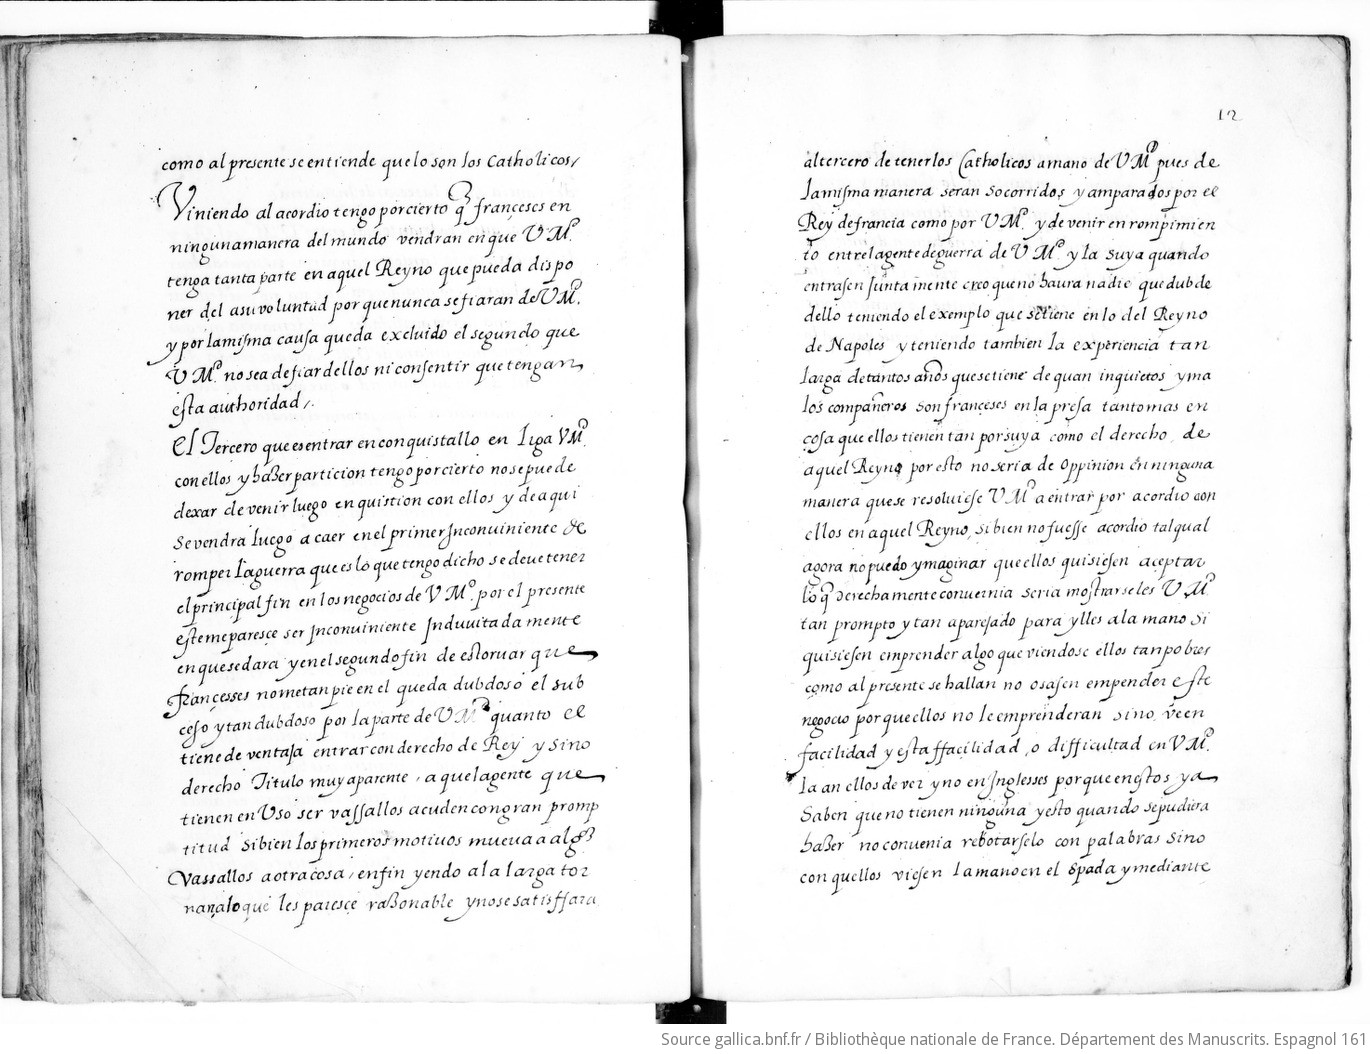 como al presente se entiende que lo son los Catholicos/
Viniendo al acordio tengo por cierto q̃ françeses en
ninguna manera del mundo vendran en que V M.ᵈ
tenga tanta parte en aquel Reyno que pueda dispo
ner del a su voluntad por que nunca se fiaran de V M.ᵈ
y por la misma causa queda excluido el segundo que
V M.ᵈ no sea de fiar dellos ni consentir que tengan
esta authoridad/.
El Tercero que es entrar en conquistallo en Liga V M.ᵈ
con ellos y haßer particion tengo por cierto no se puede
dexar de venir luego en quistion con ellos y de aqui
se vendra luego a caer en el primer Inconuiniente de
romper la guerra que es lo que tengo dicho se deue tener
el principal fin en los negocios de V M.ᵈ por el presente
este me paresce ser Inconuiniente Induuitada mente
en que se dara y en el segundo fin de estoruar que
françesses no metan pie en el queda dubdoso el sub
ceso y tan dubdoso por la parte de V M.ᵈ quanto el
tiene de ventaja entrar con derecho de Rey y sino
derecho Titulo muy aparente, a que la gente que
tienen en Uso ser vassallos acuden con gran promp
titud si bien los primeros motiuos mueua a alg.ᵒˢ
Vassallos a otra cosa, en fin yendo a la larga tor
naña lo que les paresce raßonable y no se satisffara
12
al tercero de tener los Catholicos a mano de V M.ᵈ pues de
la misma manera seran socorridos y amparados por el
Rey de francia como por V M.ᵈ y de venir en rompimien
to entre la gente de guerra de V M.ᵈ y la suya quando
entrasen Junta mente creo que no haura nadie que dubde
dello teniendo el exemplo que se tiene en lo del Reyno
de Napoles y teniendo tambien la experiencia tan
larga de tantos años que se tiene de quan inquietos y ma
los compañeros son françeses en la presa tanto mas en
cosa que ellos tienen tan por suya como el derecho de
aquel Reyno por esto no seria de oppinion en ninguna
manera que se resoluiese V M.ᵈ a entrar por acordio con
ellos en aquel Reyno, si bien no fuesse acordio tal qual
agora no puedo ymaginar que ellos quisiesen aceptar
lo q̃ derechamente conuernia seria mostrarseles V M.ᵈ
tan prompto y tan aparejado para ylles a la mano si
quisiesen emprender algo que viendose ellos tan pobres
como al presente se hallan no osasen empender este
negocio por que ellos no le emprenderan sino veen
facilidad y esta ffacilidad, o difficultad en V M.ᵈ
la an ellos de ver y no en Inglesses porque en estos ya
saben que no tienen ninguna y esto quando se pudiera
haßer no conuenia rebotarselo con palabras sino
con quellos viesen la mano en el Spada y mediante